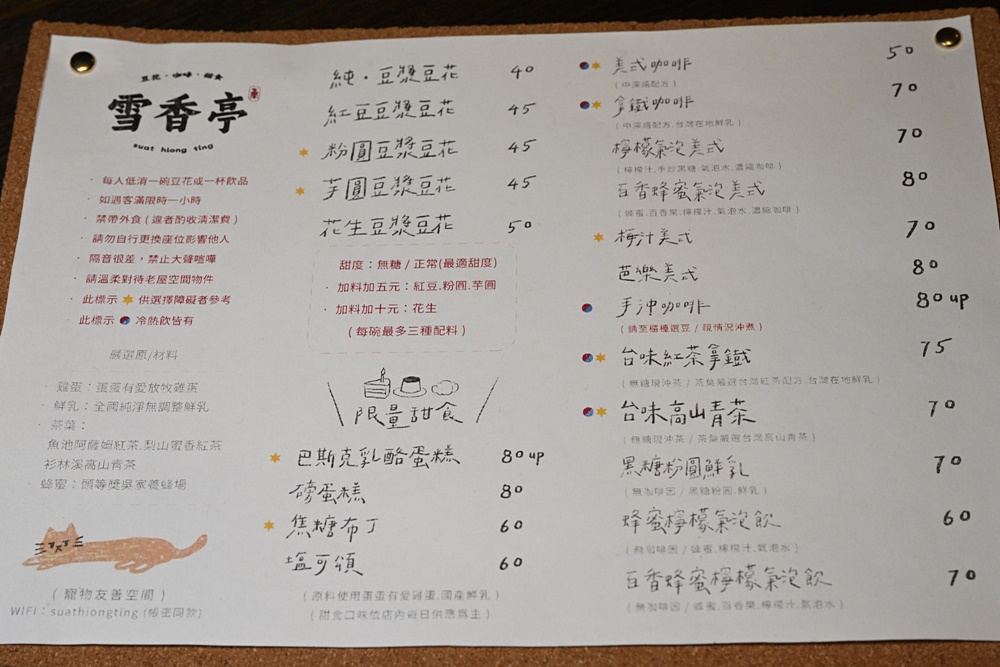 豆花・咖啡・甜食
雪香亭
suat hiong ting
・每人低消一碗豆花或一杯飲品
・如遇客滿限時一小時
・禁帶外食（違者酌收清潔費）
・請勿自行更換座位影響他人
・隔音很差，禁止大聲喧嘩
・請溫柔對待老屋空間物件
・此標示 供選擇障礙者參考
・此標示 冷熱飲皆有
嚴選原/材料
・雞蛋：蛋蛋有愛放牧雞蛋
・鮮乳：全國純淨無調整鮮乳
・茶葉：
魚池阿薩姆紅茶.梨山蜜香紅茶
杉林溪高山青茶
・蜂蜜：頭等獎吳家養蜂場
（寵物友善空間）
WIFI：suathiongting (帳密同款)
純・豆漿豆花 40
紅豆豆漿豆花 45
粉圓豆漿豆花 45
芋圓豆漿豆花 45
花生豆漿豆花 50
甜度：無糖 / 正常(最適甜度)
・加料加五元：紅豆.粉圓.芋圓
・加料加十元：花生
（每碗最多三種配料）
限量甜食
巴斯克乳酪蛋糕 80up
磅蛋糕 80
焦糖布丁 60
塩可頌 60
（原料使用蛋蛋有愛雞蛋.國產鮮乳）
（甜食口味依店內每日供應為主）
美式咖啡 50
（中深焙配方）
拿鐵咖啡 70
（中深焙配方.台灣在地鮮乳）
檸檬氣泡美式 70
（檸檬汁.手炒黑糖.氣泡水.濃縮咖啡）
百香蜂蜜氣泡美式 80
（蜂蜜.百香果.檸檬汁.氣泡水.濃縮咖啡）
梅汁美式 70
芭樂美式 80
手沖咖啡 80up
（請至櫃檯選豆 / 視情況沖煮）
台味紅茶拿鐵 75
（無糖現沖茶 / 茶葉嚴選台灣紅茶配方.台灣在地鮮乳）
台味高山青茶 70
（無糖現沖茶 / 茶葉嚴選台灣高山青茶）
黑糖粉圓鮮乳 70
（無咖啡因 / 黑糖粉圓.鮮乳）
蜂蜜檸檬氣泡飲 60
（無咖啡因 / 蜂蜜.檸檬汁.氣泡水）
百香蜂蜜檸檬氣泡飲 70
（無咖啡因 / 蜂蜜.百香果.檸檬汁.氣泡水）